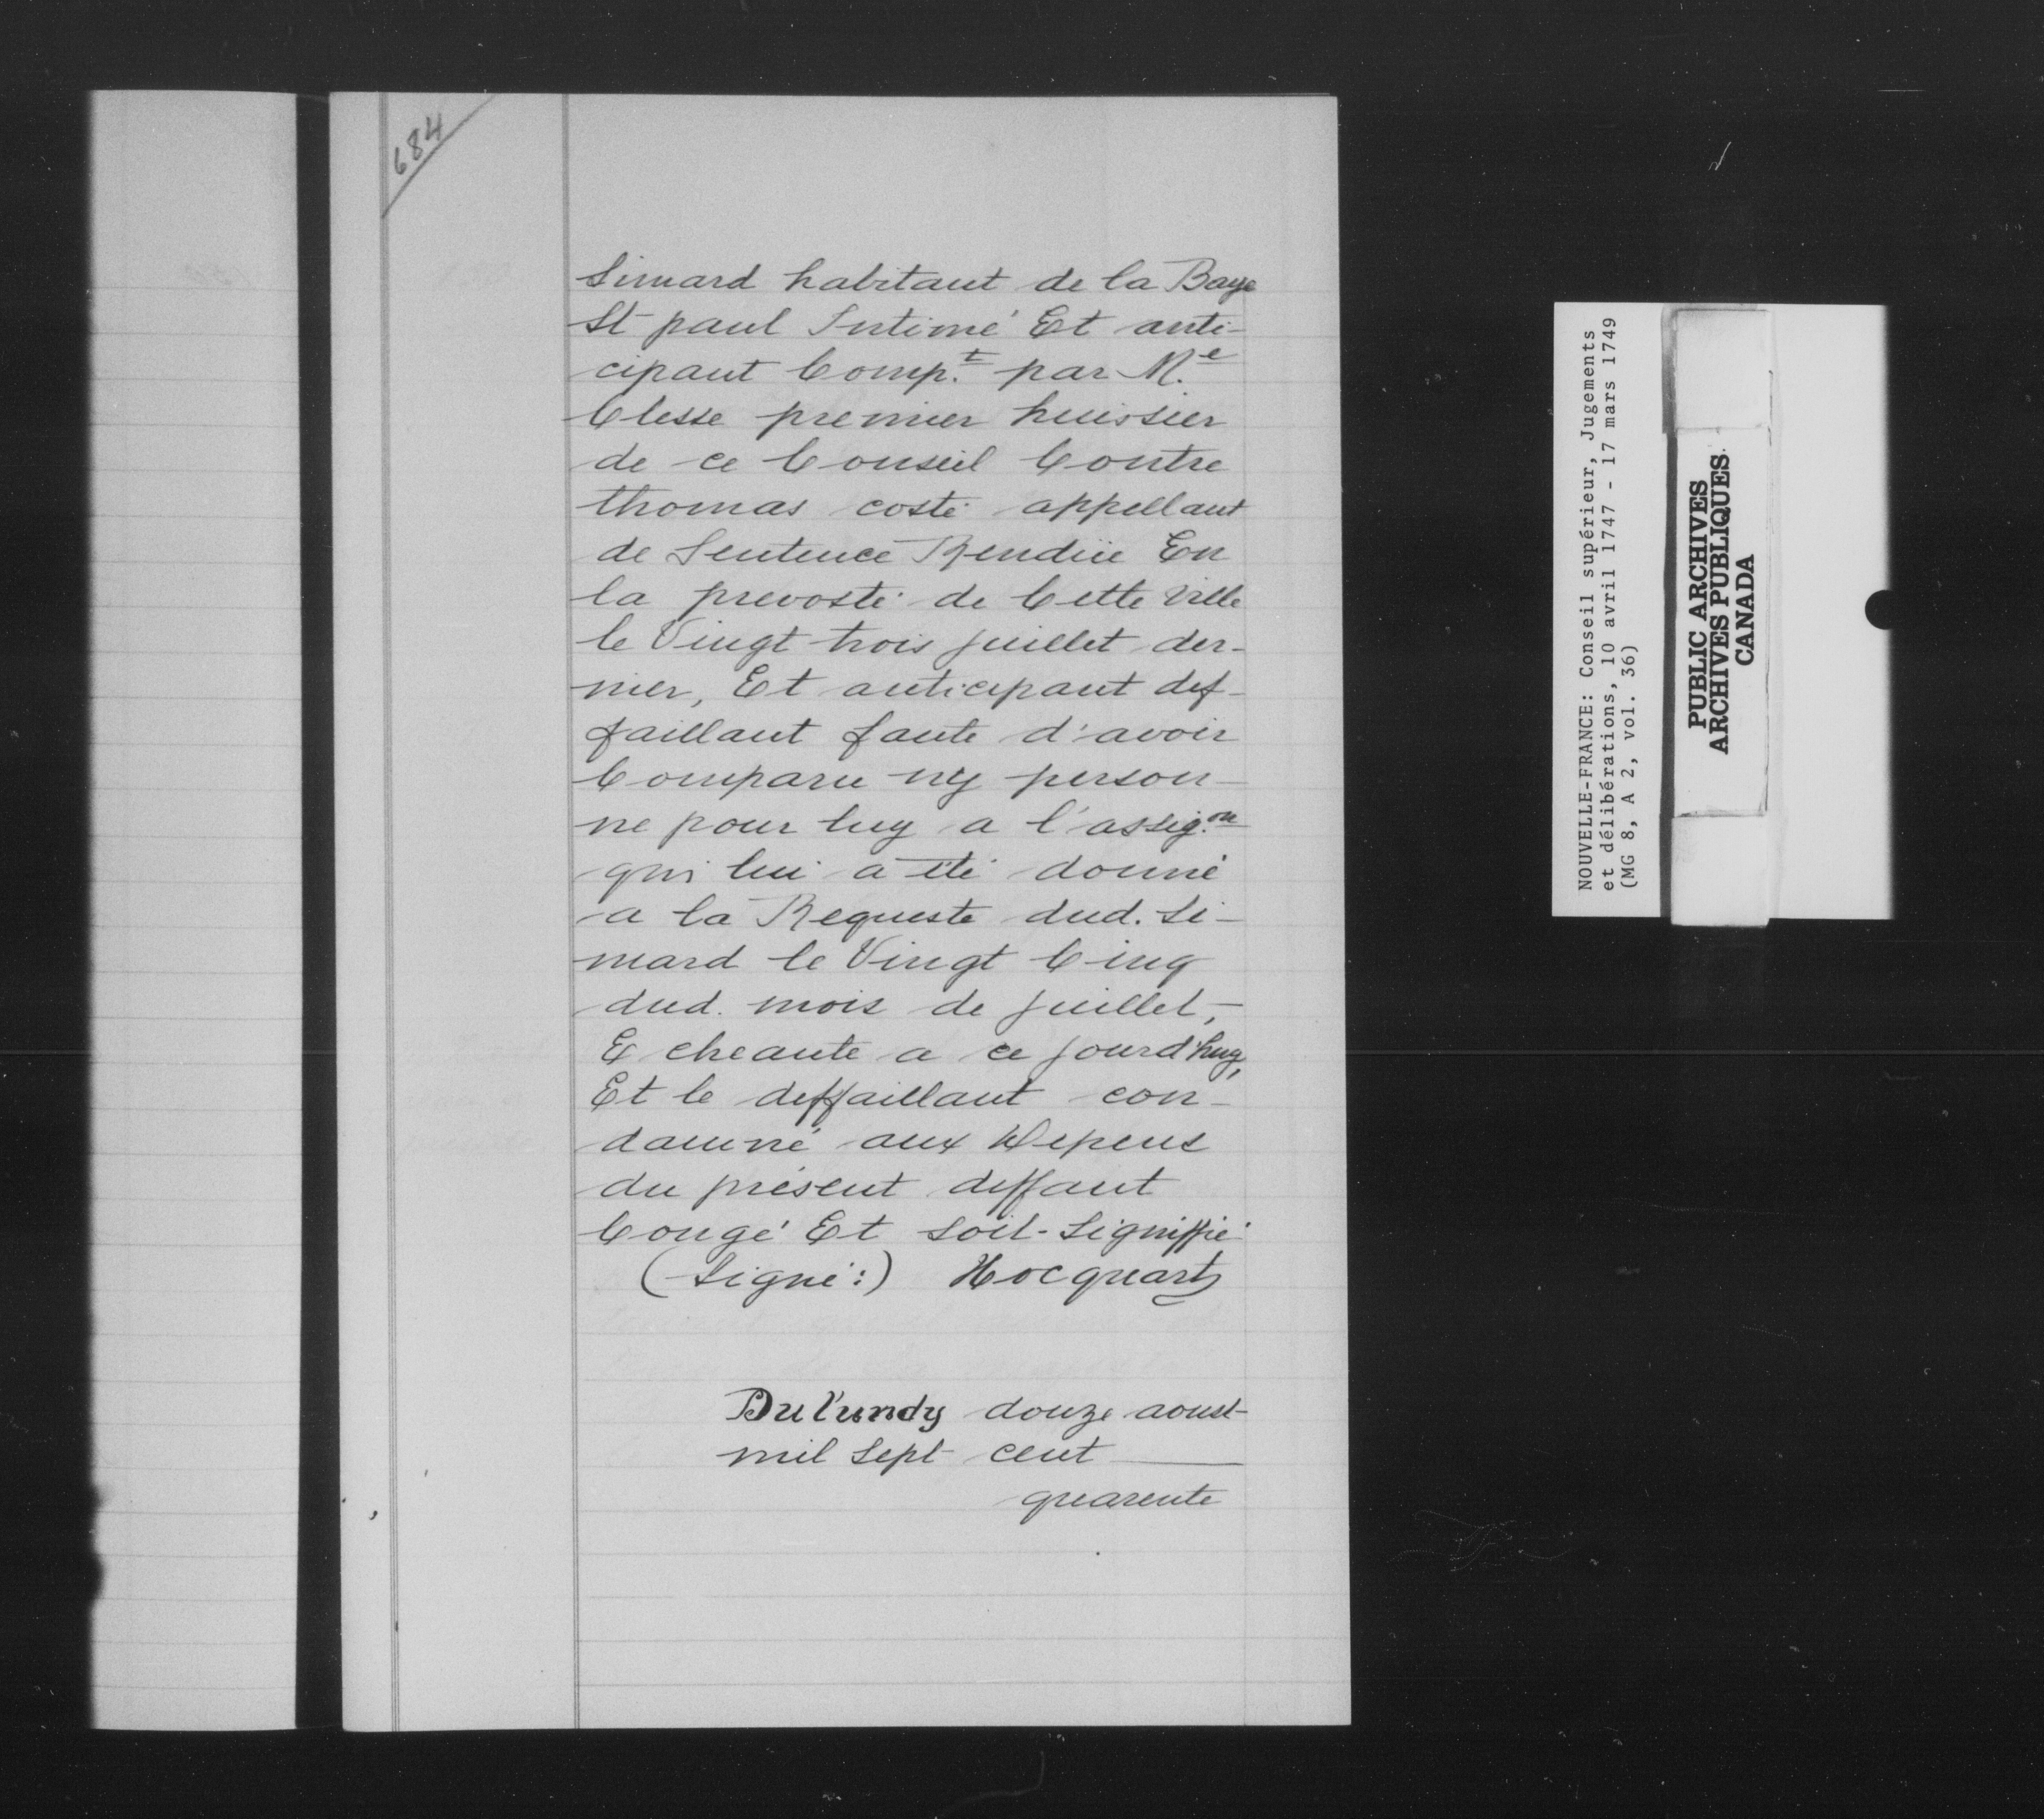 684
Simard habitant de la Baye
St paul Intimé Et anti-
cipant Comp.t par M.e
Clesse premier huissier
de ce Conseil Contre
thomas costé appellant
de Sentence Rendüe En
la prevosté de Cette Ville
le Vingt trois juillet der-
nier, Et anticipant def-
faillant faute d'avoir
Comparu ny person-
ne pour luy a l'assig.on
qui lui a été donné
a la Requeste dud. Si-
mard le Vingt Cinq
dud. mois de juillet,
E cheante a ce jourd'huy,
Et le deffaillant con-
damné aux Depens
du présent deffaut
Congé Et soit-Signiffié
(Signé:) Hocquart
Du lundy douze aoust
mil Sept cent
quarente
NOUVELLE-FRANCE: Conseil supérieur, Jugements
et délibérations, 10 avril 1747 - 17 mars 1749
(MG 8, A 2, vol. 36)
PUBLIC ARCHIVES
ARCHIVES PUBLIQUES
CANADA